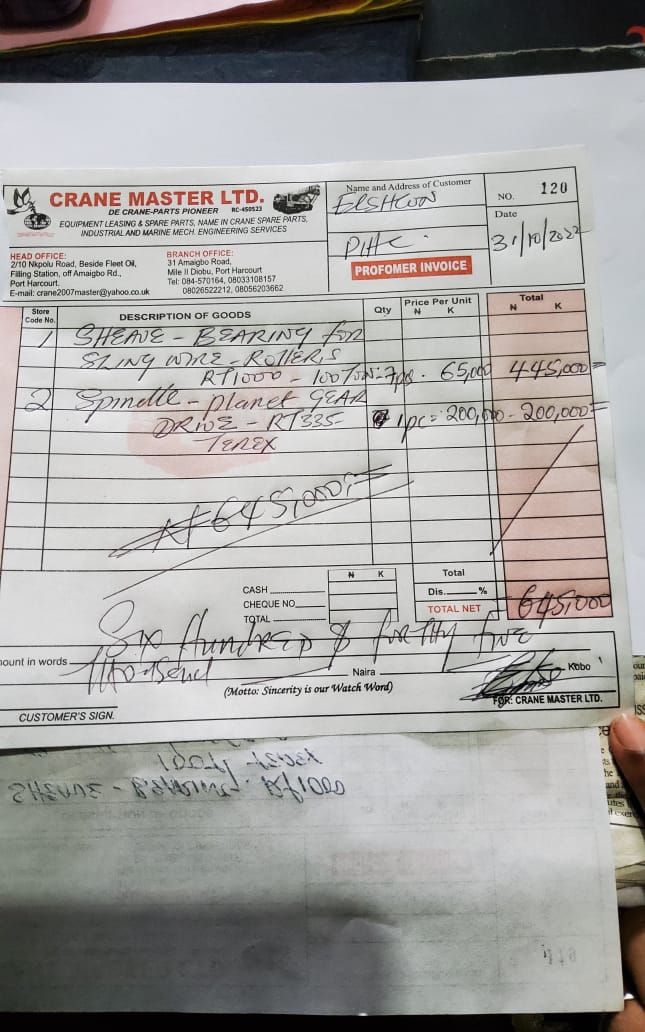 CRANE MASTER LTD.
DE CRANE-PARTS PIONEER RC-450523
EQUIPMENT LEASING & SPARE PARTS, NAME IN CRANE SPARE PARTS,
INDUSTRIAL AND MARINE MECH. ENGINEERING SERVICES
HEAD OFFICE:
2/10 Nkpolu Road, Beside Fleet Oil,
Filling Station, off Amaigbo Rd.,
Port Harcourt.
E-mail: crane2007master@yahoo.co.uk
BRANCH OFFICE:
31 Amaigbo Road,
Mile II Diobu, Port Harcourt
Tel: 084-570164, 08033108157
08026522212, 08056203662
Name and Address of Customer
PROFOMER INVOICE
NO. 120
Date
31/10/2022
Store Code No.
DESCRIPTION OF GOODS
Qty
Price Per Unit
N K
Total
N K
1 SHEAVE - BEARING for
SLING WIRE - ROLLERS
RT1000 - 100TON = 7pcs. 65,000 445,000=
2 Spindle - planet GEAR
DRIVE - RT335- 1pc = 200,000 - 200,000=
TEREX
N645,000=
N K
CASH
CHEQUE NO.
TOTAL
Total
Dis. %
TOTAL NET 645,000
Six Hundred & forthy five
ount in words thousand
Naira
Kobo
(Motto: Sincerity is our Watch Word)
CUSTOMER'S SIGN.
FOR: CRANE MASTER LTD.
SHEAVE - BEARING. RT1000